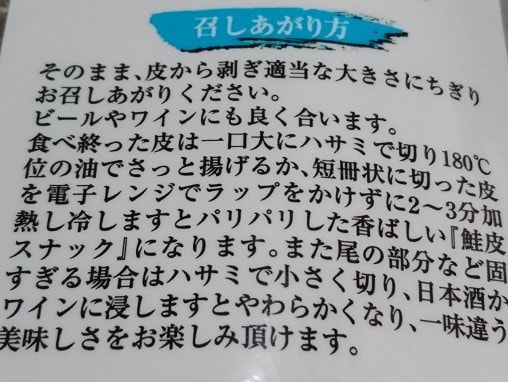 召しあがり方
そのまま、皮から剥ぎ適当な大きさにちぎり
お召しあがりください。
ビールやワインにも良く合います。
食べ終った皮は一口大にハサミで切り180℃
位の油でさっと揚げるか、短冊状に切った皮
を電子レンジでラップをかけずに2〜3分加
熱し冷しますとパリパリした香ばしい『鮭皮
スナック』になります。また尾の部分など固
すぎる場合はハサミで小さく切り、日本酒か
ワインに浸しますとやわらかくなり、一味違う
美味しさをお楽しみ頂けます。